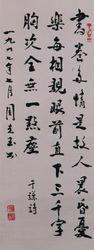 書卷多情是故人晨昏憂
樂每相親眼前直下三千字
胸次全無一點塵
于謙詩
一九八七年七月周克玉书